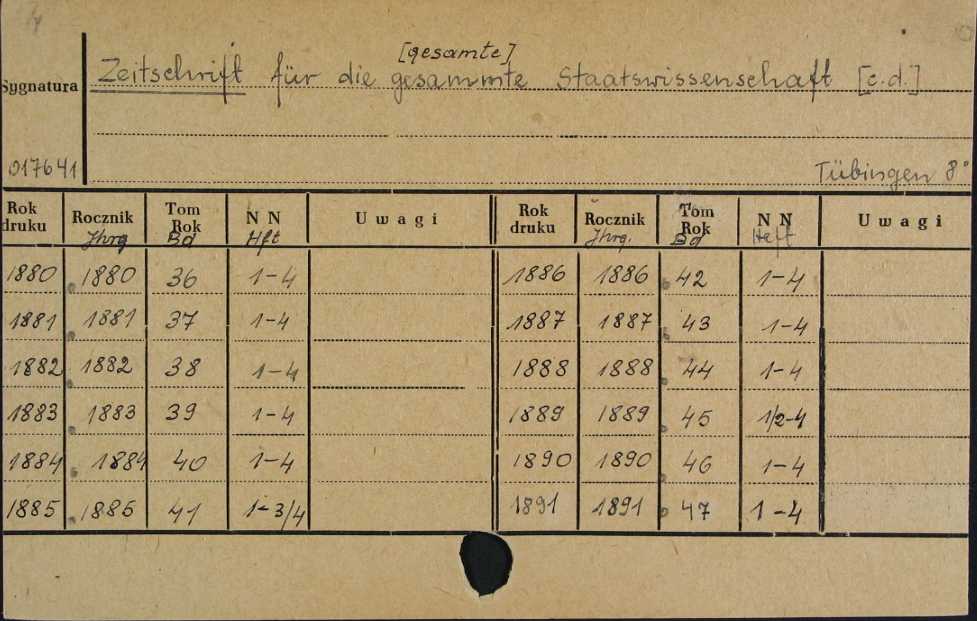 [gesamte]
Sygnatura Zeitschrift für die gesammte Staatswissenschaft [c.d.]
017641 Tübingen 8°
Rok druku Rocznik Jhrg Tom Rok Bd N N Hft Uwagi Rok druku Rocznik Jhrg. Tom Rok Bd N N Heft Uwagi
1880 1880 36 1-4 1886 1886 42 1-4
1881 1881 37 1-4 1887 1887 43 1-4
1882 1882 38 1-4 1888 1888 44 1-4
1883 1883 39 1-4 1889 1889 45 1/2-4
1884 1884 40 1-4 1890 1890 46 1-4
1885 1885 41 1-3/4 1891 1891 47 1-4